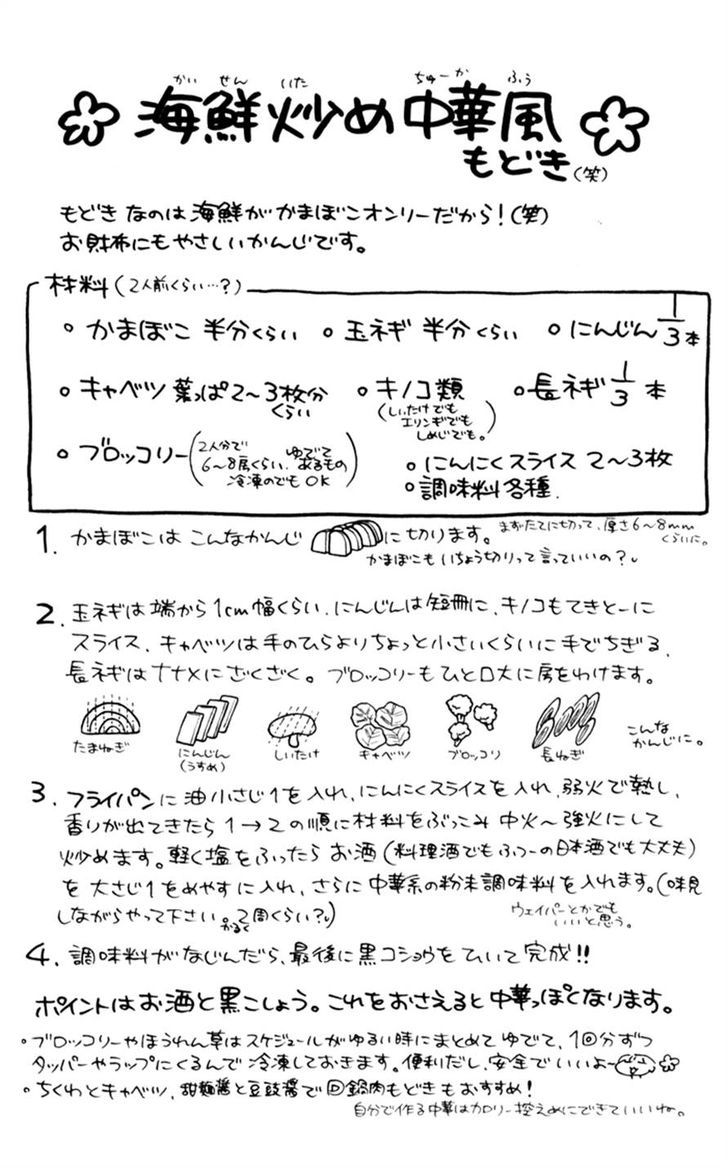 かいせんいた ちゅーかふう
海鮮炒め中華風
もどき(笑)
もどきなのは海鮮がかまぼこオンリーだから!(笑)
お財布にもやさしいかんじです。
材料(2人前くらい…?)
○かまぼこ 半分くらい ○玉ネギ 半分くらい ○にんじん 1/3本
○キャベツ 葉っぱ2〜3枚分くらい ○キノコ類 ○長ネギ 1/3本
(しいたけでも
エリンギでも
しめじでも。)
○ブロッコリー(2人分で
6〜8房くらい。ゆでてあるもの
冷凍のでもOK)
○にんにくスライス 2〜3枚
○調味料各種.
1. かまぼこはこんなかんじに切ります。まずたてに切って、厚さ6〜8mm
くらいに。
かまぼこもいちょう切りって言っていいの?
2. 玉ネギは端から1cm幅くらい、にんじんは短冊に、キノコもてきとーに
スライス、キャベツは手のひらよりちょっと小さいくらいに手でちぎる、
長ネギはナナメにざくざく。ブロッコリーもひと口大に房をわけます。
たまねぎ にんじん しいたけ キャベツ ブロッコリ 長ねぎ こんな
(うすめ) かんじに。
3. フライパンに油小さじ1を入れ、にんにくスライスを入れ、弱火で熱し、
香りが出てきたら1→2の順に材料をぶっこみ中火〜強火にして
炒めます。軽く塩をふったらお酒(料理酒でもふつーの日本酒でも大丈夫)
を大さじ1をめやすに入れ、さらに中華系の粉末調味料を入れます。(味見
しながらやって下さい。かるく2周くらい?)
ウェイパーとかでも
いいと思う。
4. 調味料がなじんだら、最後に黒コショウをひいて完成!!
ポイントはお酒と黒こしょう。これをおさえると中華っぽくなります。
○ブロッコリーやほうれん草はスケジュールがゆるい時にまとめてゆでて、1回分ずつ
タッパーやラップにくるんで冷凍しておきます。便利だし、安全でいいよー
○ちくわとキャベツ、甜麺醤と豆豉醤で回鍋肉もどきもおすすめ!
自分で作る中華はカロリー控えめにできていいね。